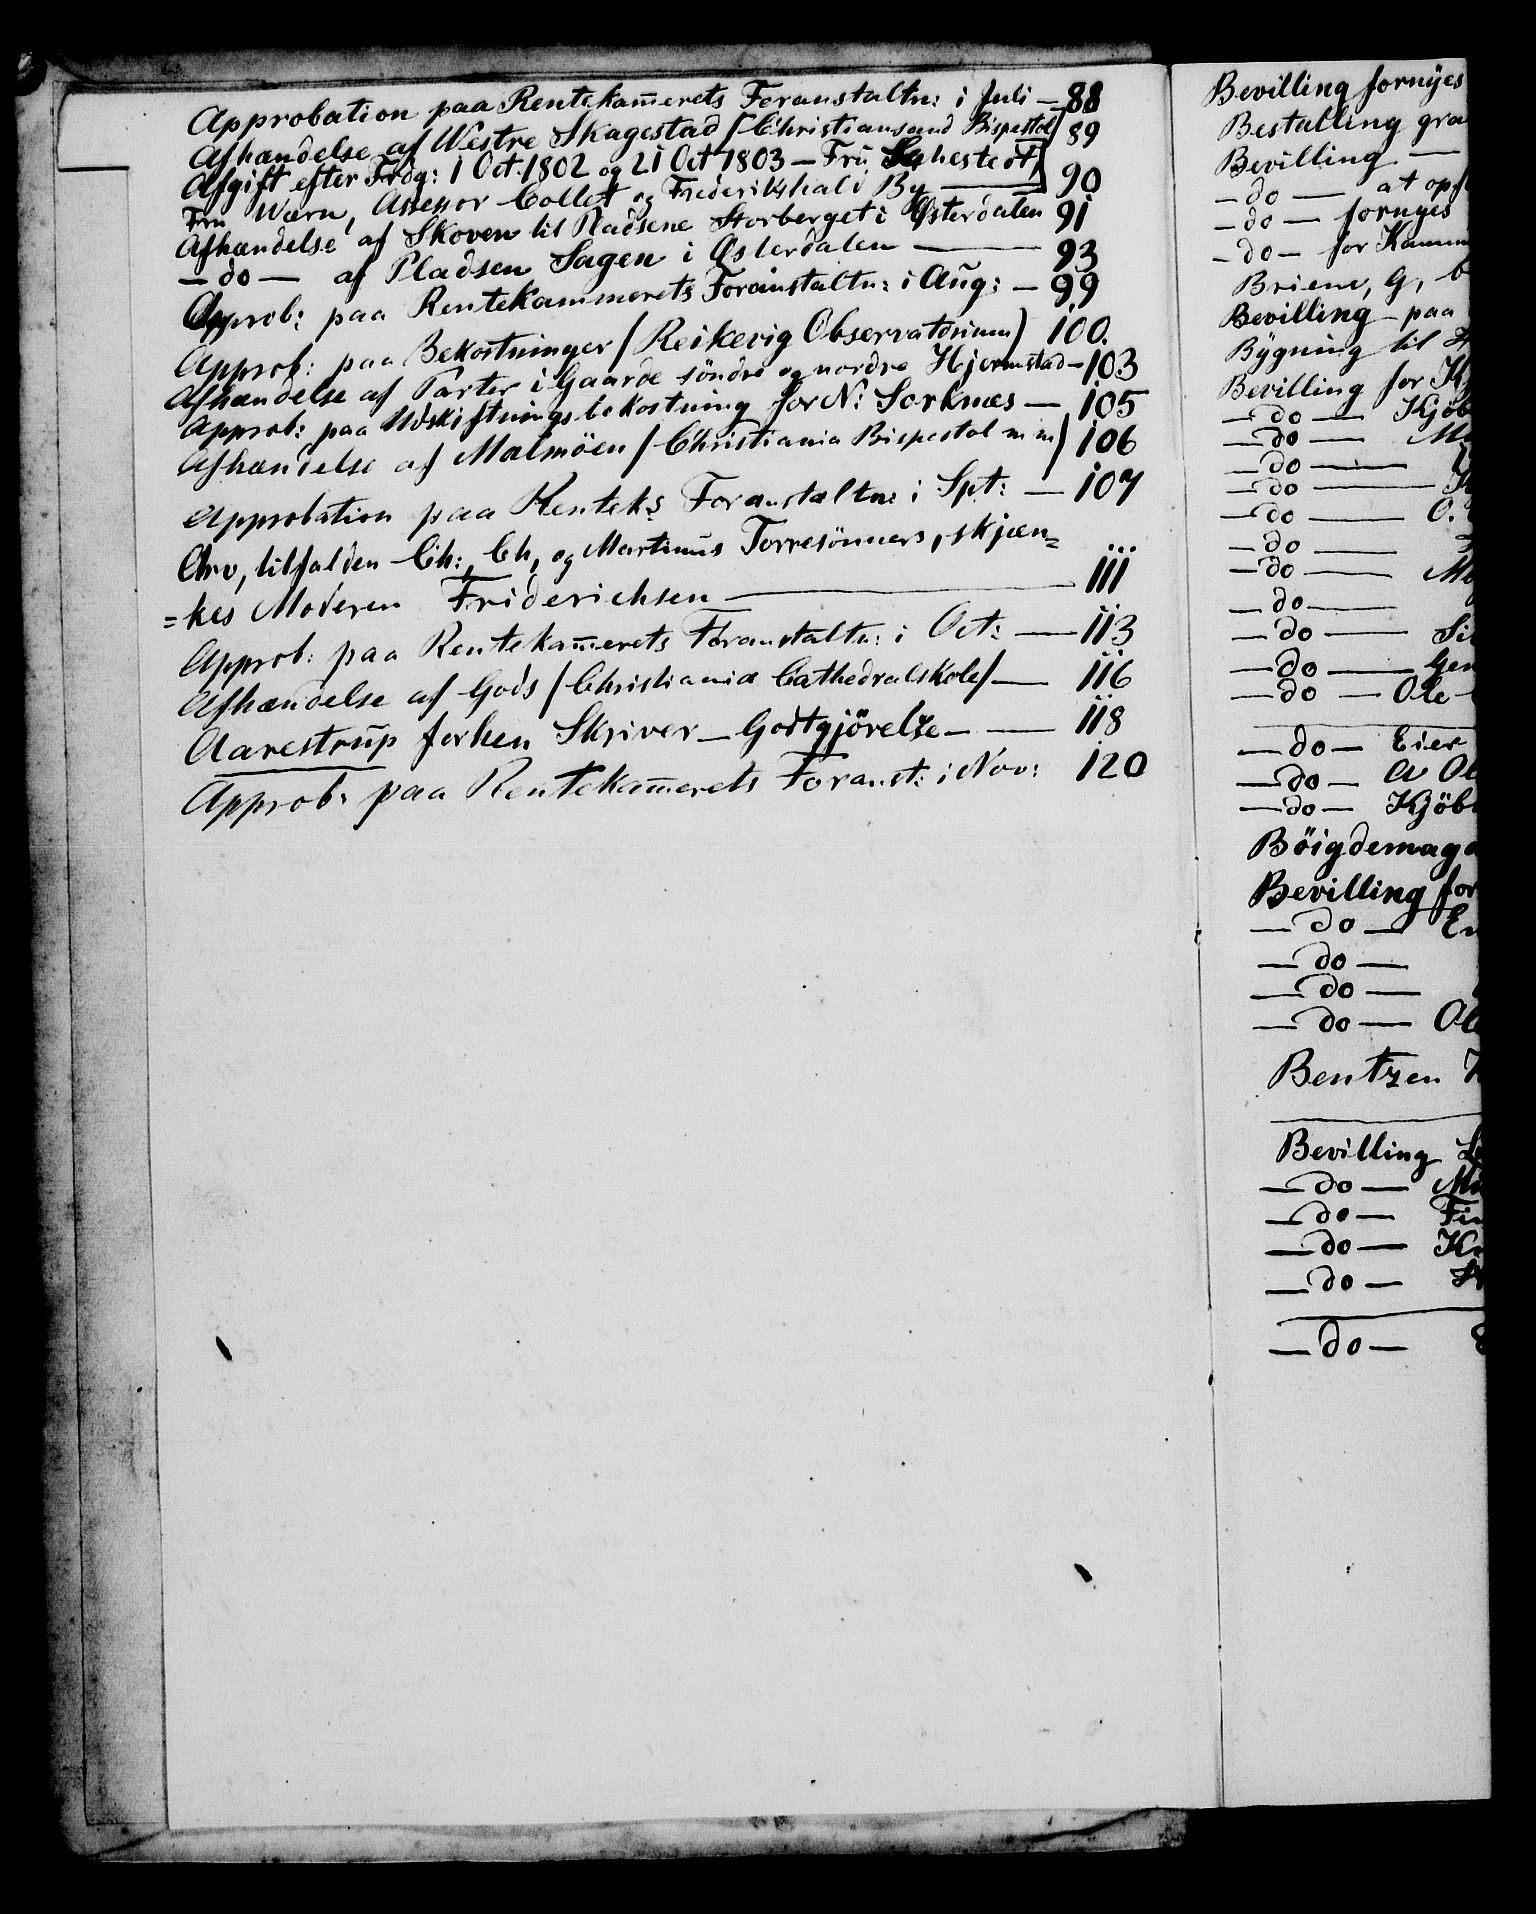 Approbation paa Rentekam̄erets Foranstaltn: i Juli — 88
Afhændelse af Westre Skagestad /Christiansand Bispestol/ 89
Afgift efter Frdg: 1 Oct. 1802 og 21 Oct 1803 — Fru Sehestedt,
Fru Wærn, Assessor Collet og Frederikshald By — 90
Afhændelse af Skoven til Pladsene Storberget i Østerdalen 91
— do — af Pladsen Sagen i Østerdalen — 93
Approb: paa Rentekammerets Foranstaltn: i Aug: — 99
Approb: paa Bekostninger /Reikevig Observatorium) 100.
Afhændelse af Parter i Gaarde söndre og nordre Hjermstad — 103
Approb: paa Udskiftningsbekostning for N: Sorknæs — 105
Afhændelse af Malmöen /Christiania Bispestol m m) 106
Approbation paa Renteks Foranstaltn: i Spt: — 107
Arv, tilfalden Ch:, Ch, og Martinus Torresönners, skjæn=
=kes Moderen Friderichsen — 111
Approb: paa Rentekam̄erets Foranstaltn: i Oct: — 113
Afhændelse af Gods /Christiania Cathedralskole/ — 116
Aarestrup forhen Skriver — Godtgjörelse — 118
Approb: paa Rentekam̄erets Foranst: i Nov: 120
Bevilling fornyes
Bestalling gra
Bevilling —
— do — at op
— do — fornyes
— do — for Kamm
Briem, G,
Bevilling — paa
Bygning til
Bevilling for
— do — Kjöb
— do —
— do —
— do —
— do — O.
— do —
— do —
— do —
— do —
— do — Gen
— do — Ole
— do — Eier
— do — A Ol
— do — Kjöb
Böigdemaga
Bevilling for
— do — En
— do —
— do —
— do — Ol
Bentzen
Bevilling
— do —
— do — Fin
— do —
— do —
— do —